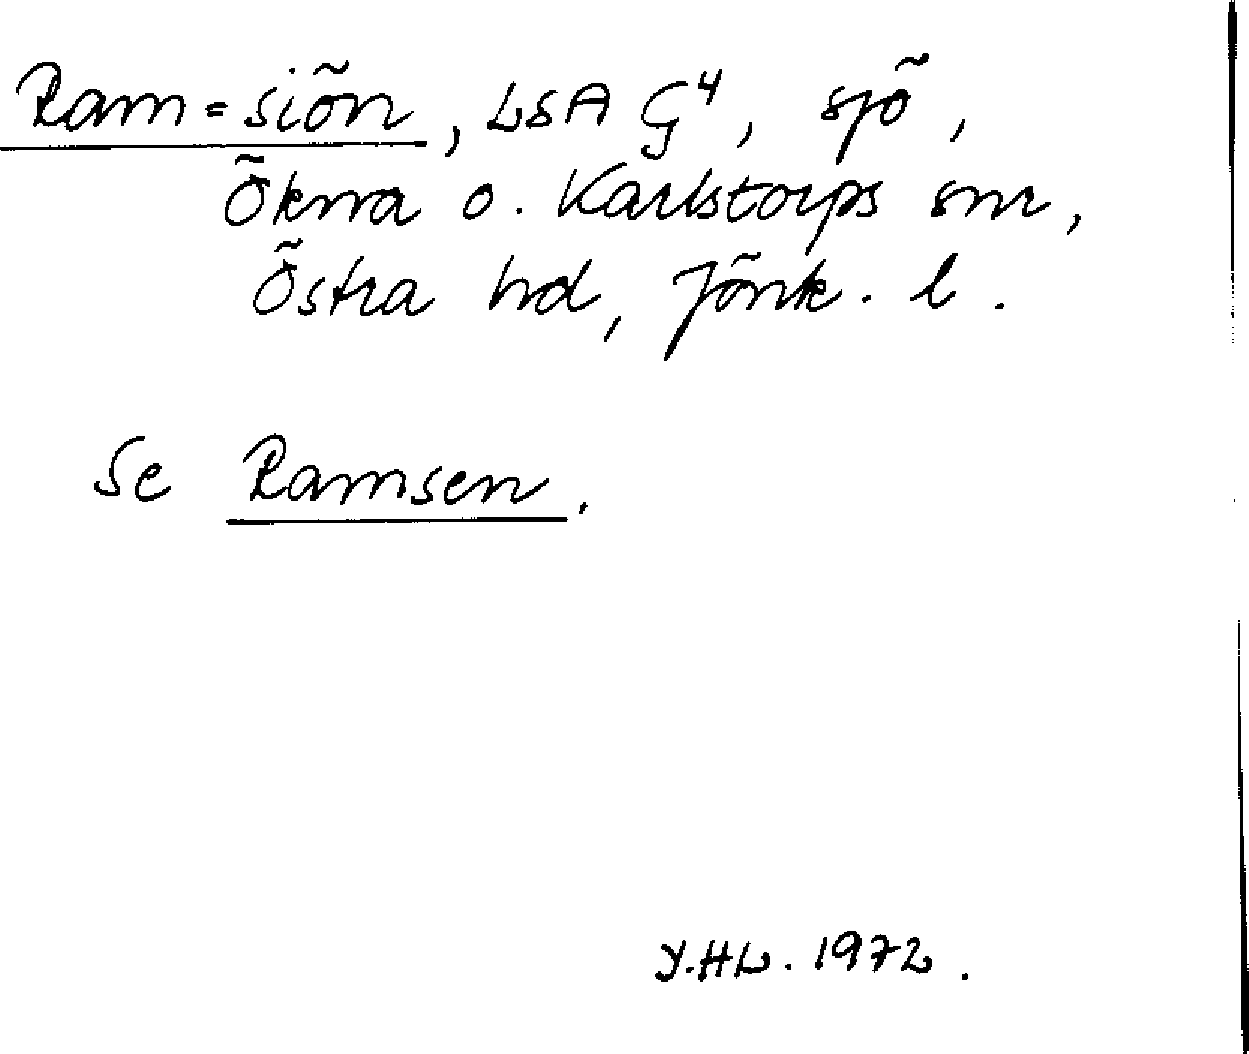 Ram=siön, LSA G⁴, sjö,
Ökna o. Karlstorps snr,
Östra hd, Jönk. l.
Se Ramsen.
Y.HL. 1972.